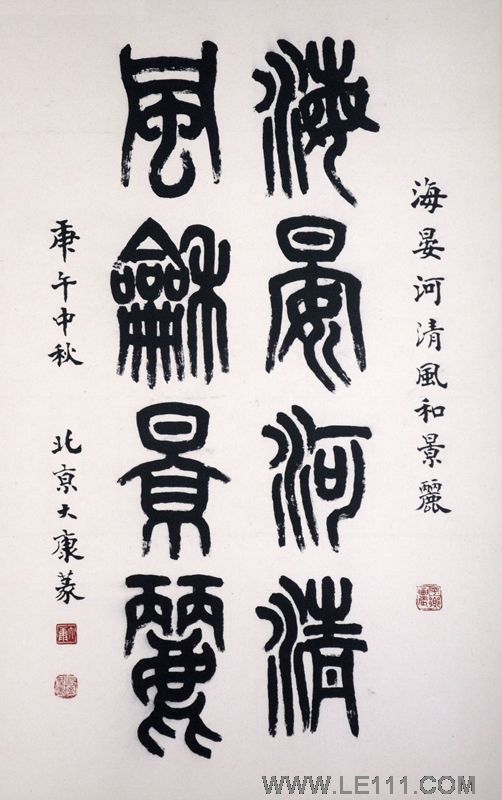 海晏河清風和景麗
海晏河清
風龢景麗
庚午中秋 北京大康篆
WWW.LE111.COM